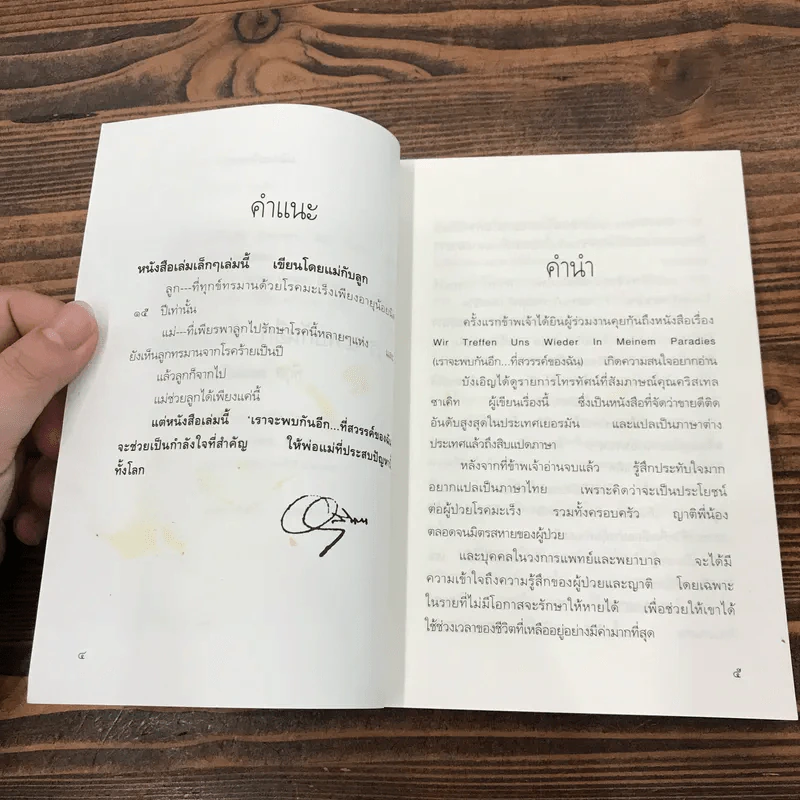 คำแนะ
หนังสือเล่มเล็กๆเล่มนี้ เขียนโดยแม่กับลูก
ลูก---ที่ทุกข์ทรมานด้วยโรคมะเร็งเพียงอายุน้อย
๑๕ ปีเท่านั้น
แม่---ที่เพียรพาลูกไปรักษาโรคนี้หลายๆแห่ง
ยังเห็นลูกทรมานจากโรคร้ายเป็นปี
แล้วลูกก็จากไป
แม่ช่วยลูกได้เพียงแค่นี้
แต่หนังสือเล่มนี้ 'เราจะพบกันอีก...ที่สวรรค์ของฉัน
จะช่วยเป็นกำลังใจที่สำคัญ ให้พ่อแม่ที่ประสบปัญหา
ทั้งโลก
๔
คำนำ
ครั้งแรกข้าพเจ้าได้ยินผู้ร่วมงานคุยกันถึงหนังสือเรื่อง
Wir Treffen Uns Wieder In Meinem Paradies
(เราจะพบกันอีก...ที่สวรรค์ของฉัน) เกิดความสนใจอยากอ่าน
บังเอิญได้ดูรายการโทรทัศน์ที่สัมภาษณ์คุณคริสเทล
ซาเคิท ผู้เขียนเรื่องนี้ ซึ่งเป็นหนังสือที่จัดว่าขายดีติด
อันดับสูงสุดในประเทศเยอรมัน และแปลเป็นภาษาต่าง
ประเทศแล้วถึงสิบแปดภาษา
หลังจากที่ข้าพเจ้าอ่านจบแล้ว รู้สึกประทับใจมาก
อยากแปลเป็นภาษาไทย เพราะคิดว่าจะเป็นประโยชน์
ต่อผู้ป่วยโรคมะเร็ง รวมทั้งครอบครัว ญาติพี่น้อง
ตลอดจนมิตรสหายของผู้ป่วย
และบุคคลในวงการแพทย์และพยาบาล จะได้มี
ความเข้าใจถึงความรู้สึกของผู้ป่วยและญาติ โดยเฉพาะ
ในรายที่ไม่มีโอกาสจะรักษาให้หายได้ เพื่อช่วยให้เขาได้
ใช้ช่วงเวลาของชีวิตที่เหลืออยู่อย่างมีค่ามากที่สุด
๕